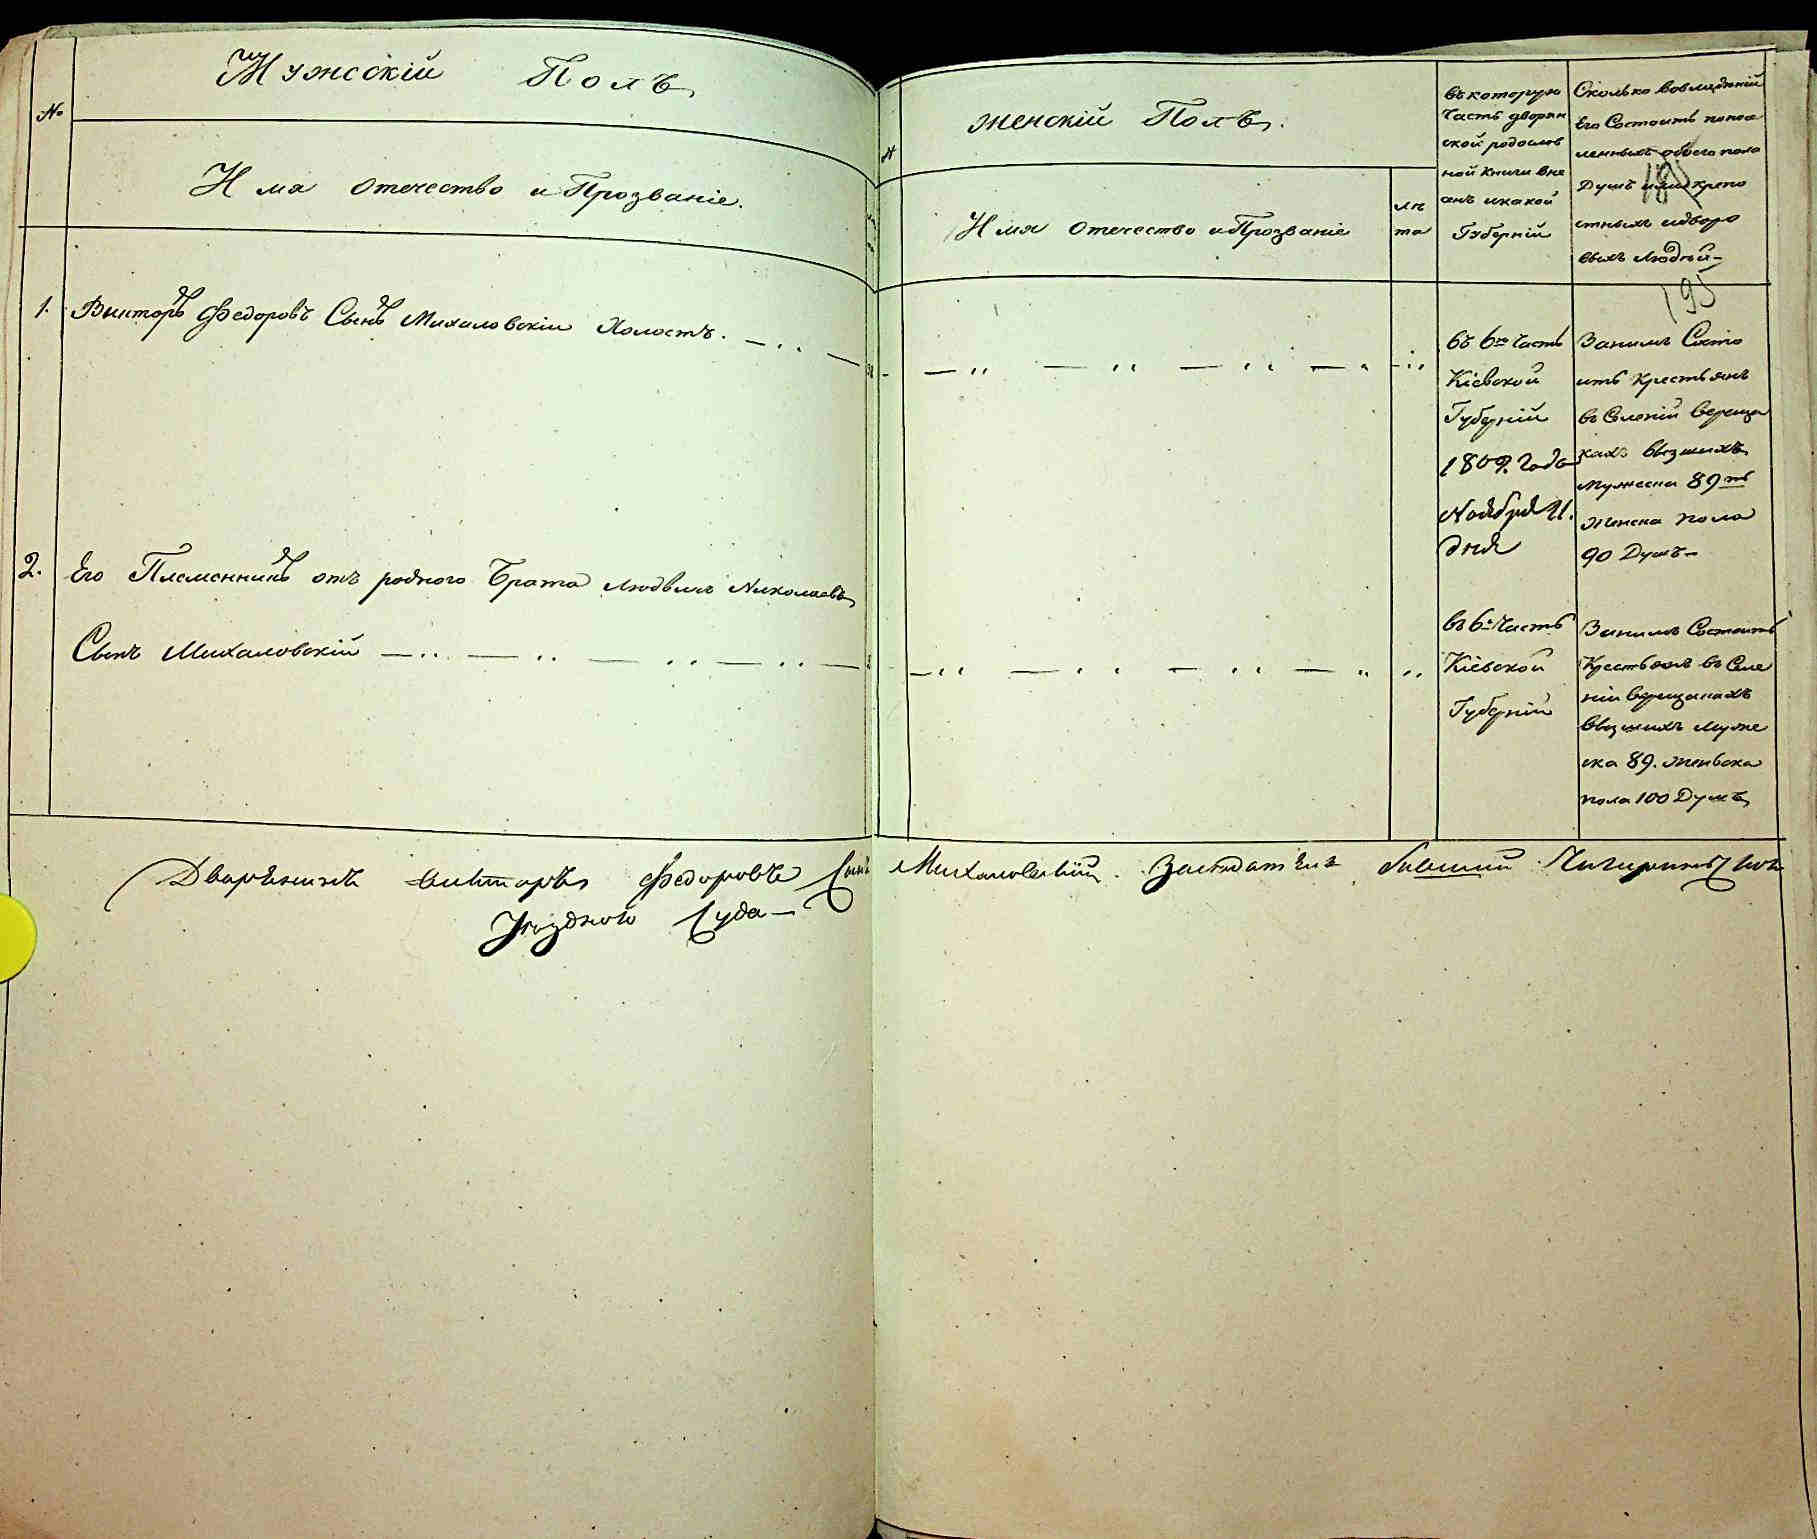 №
Мужскій Полъ
Имя Отечество и Прозваніе.
№
женскій Полъ.
Имя Отечество и Прозваніе
лѣ
та
въ которую
Часть дворян
ской родослов
ной Книги вне
анъ и какой
Губерніи
Сколько вовладѣніи
Его Состоитъ попоа
ленныхъ обоего пола
Душъ или крепо
стныхъ и дворо
выхъ людѣй
195
1.
Викторъ Федоровъ Сынъ Михаловскіи Холостъ.
въ 6ю Часть
Кіевской
Губерніи
1809. Года
Ноября 21.
дня
Занимъ Состо
итъ Крестьянъ
въ Селеніи Вереща
кахъ
мужеска 89ть
женска пола
90 Душъ
2.
Его Племенникъ отъ родного Брата Людвигъ Николаевъ
Сынъ Михаловскій
въ 6ю Часть
Кіевской
Губерніи
Занимъ Состоитъ
Крестьянъ въ Селе
ніи Верещакахъ
муже
ска 89. женвска
пола 100 Душъ
Дворѣнинъ викторъ Федоровъ Сынъ Михаловскій Заседатель бывший Чигиринского
Уѣздного Суда